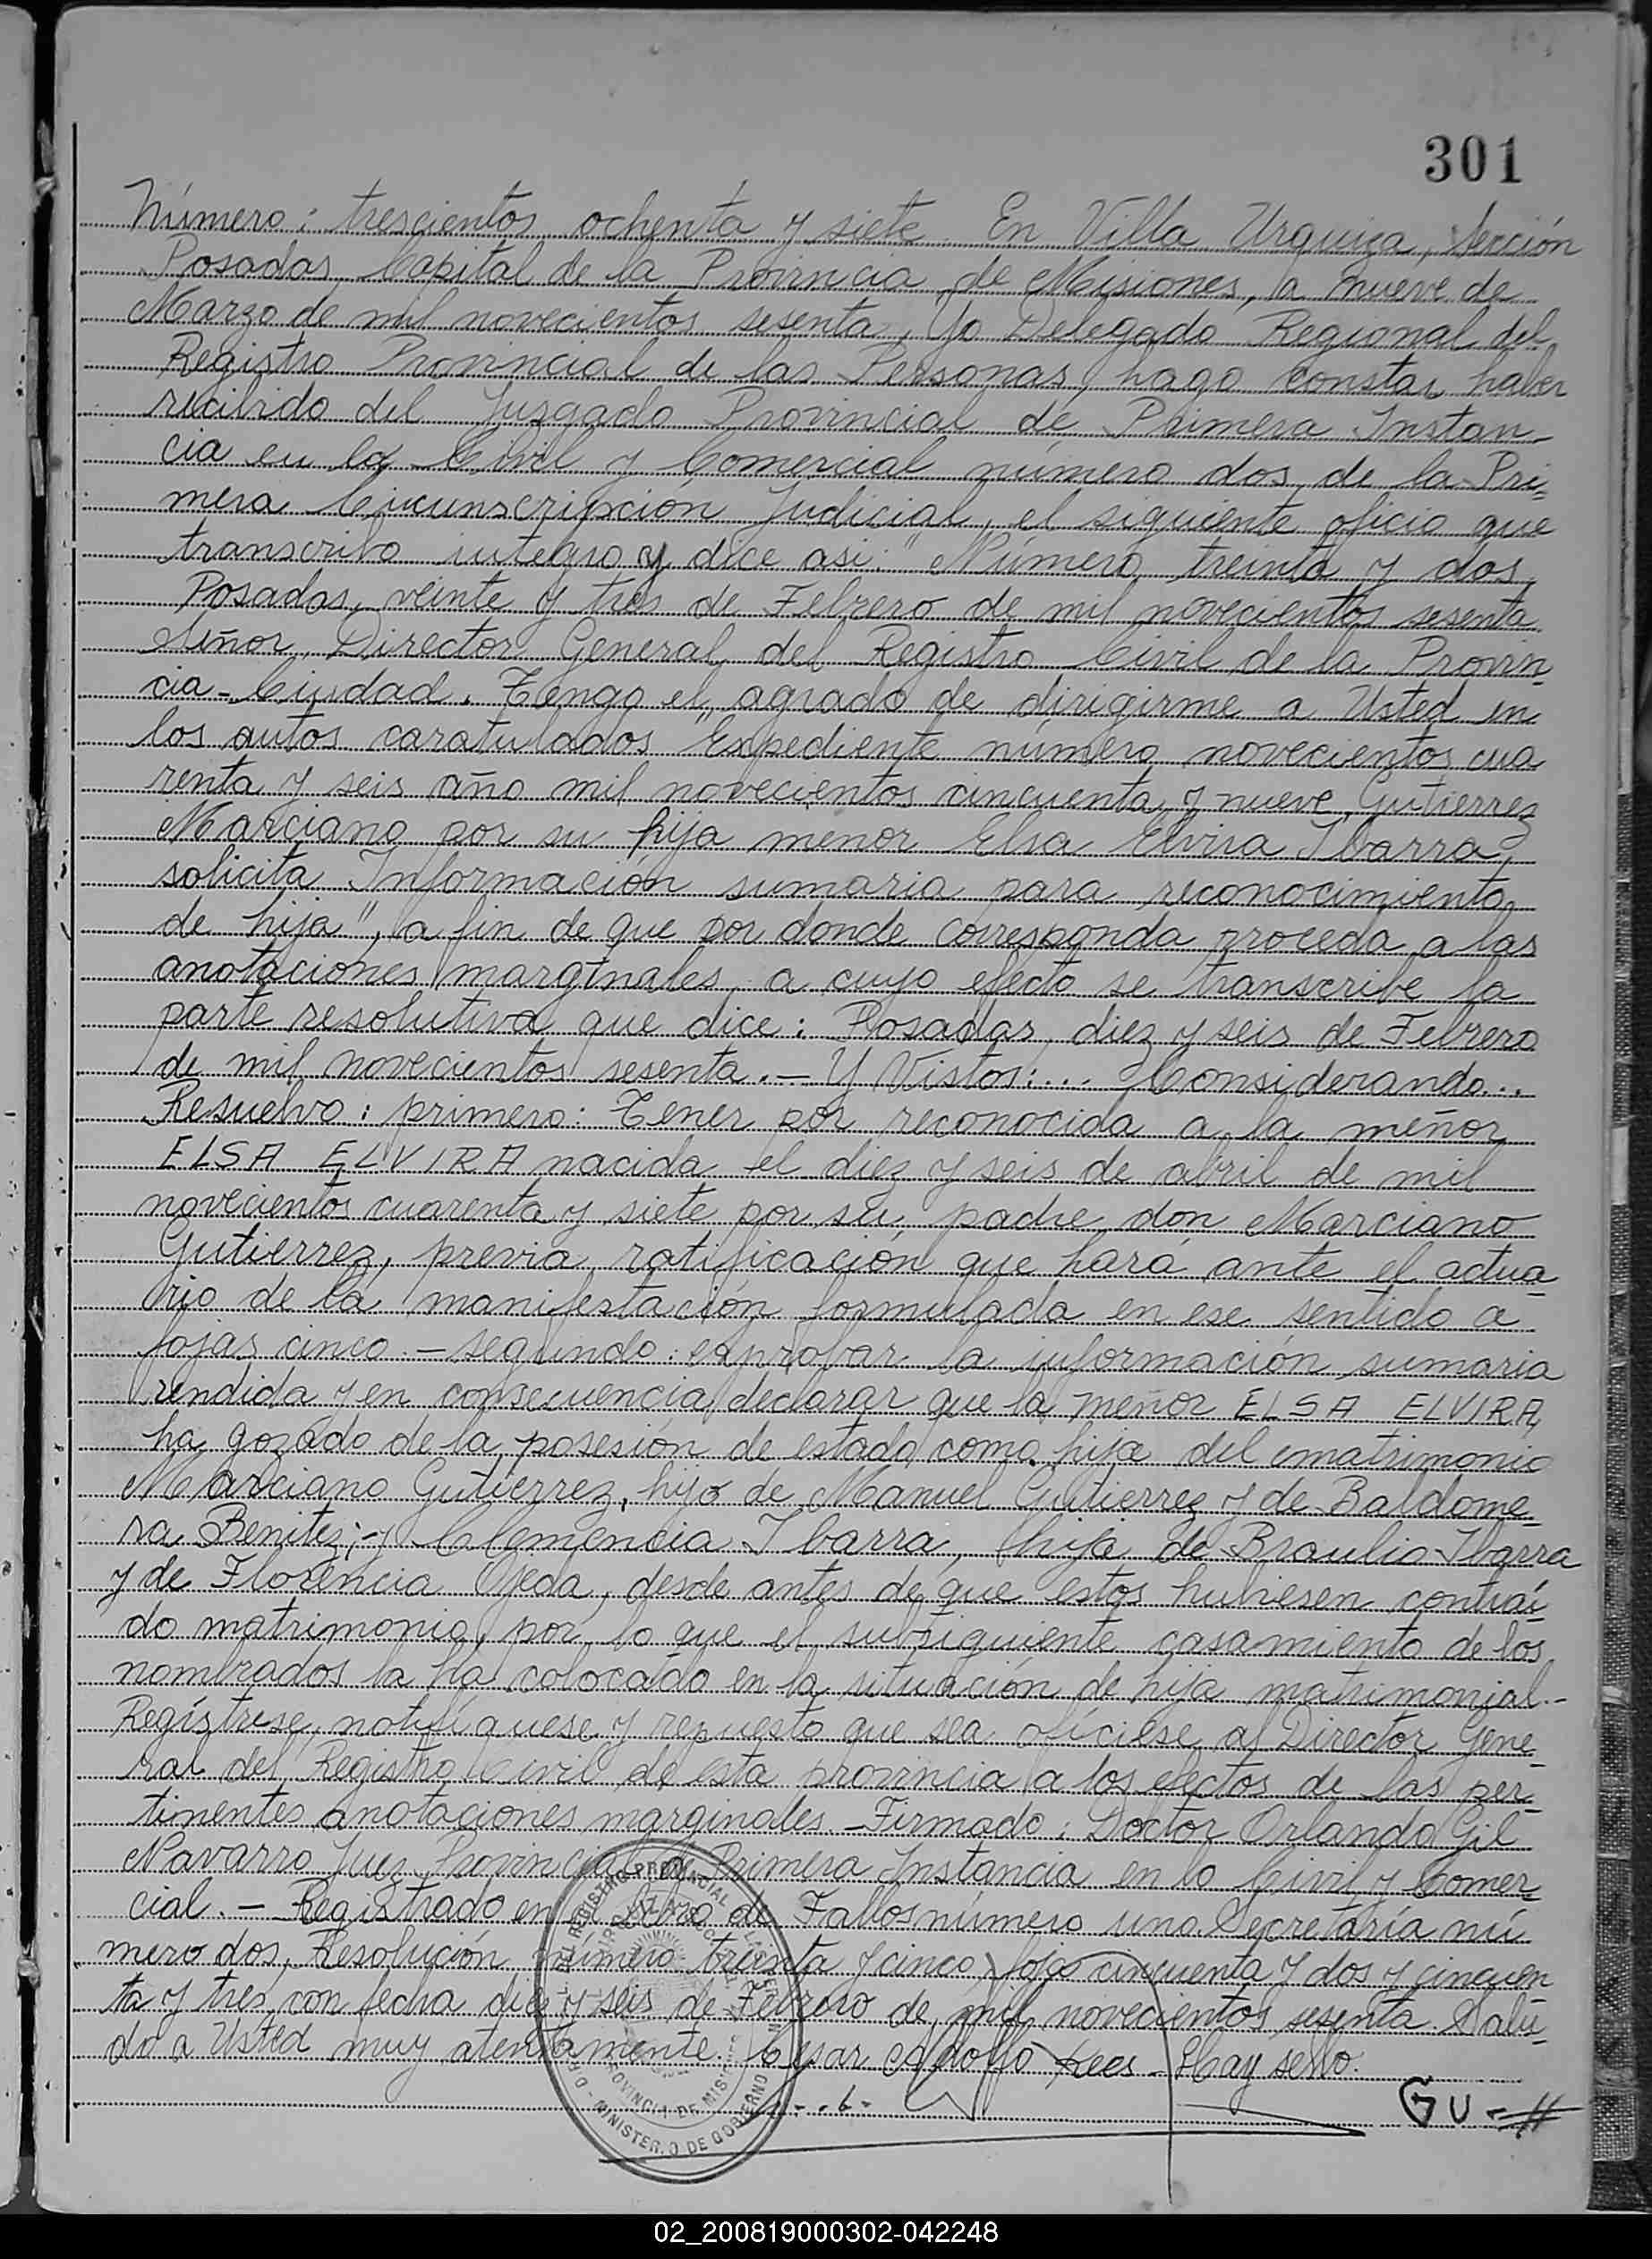 301
Número: trescientos ochenta y siete En Villa Urquiza, Sección
Posadas, Capital de la Provincia de Misiones, a nueve de
Marzo de mil novecientos sesenta, Yo Delegado Regional del
Registro Provincial de las Personas, hago constar haber
recibido del Juzgado Provincial de Primera Instan-
cia en lo Civil y Comercial número dos de la Pri-
mera Circunscripción Judicial, el siguiente oficio que
transcribo integro y dice asi: "Número treinta y dos,
Posadas, veinte y tres de Febrero de mil novecientos sesenta
Señor Director General del Registro Civil de la Provin-
cia - Ciudad. Tengo el agrado de dirigirme a Usted en
los autos caratulados "Expediente número novecientos cua
renta y seis año mil novecientos cincuenta y nueve, Gutierrez
Marciano por su hija menor Elsa Elvira Ibarra,
solicita Información sumaria para reconocimiento
de hija", a fin de que por donde corresponda proceda a las
anotaciones marginales, a cuyo efecto se transcribe la
parte resolutiva que dice: Posadas, diez y seis de Febrero
de mil novecientos sesenta. - Y Vistos:... Considerando...
Resuelvo: primero: Tener por reconocida a la meñor
ELSA ELVIRA nacida el diez y seis de abril de mil
novecientos cuarenta y siete por su padre don Marciano
Gutierrez, previa ratificación que hará ante el actua-
rio de la manifestación formulada en ese sentido a
fojas cinco. - segundo: aprobar la información sumaria
rendida y en consecuencia declarar que la meñor ELSA ELVIRA,
ha gozado de la posesión de estado como hija del matrimonio
Marciano Gutierrez, hijo de Manuel Gutierrez y de Baldome-
ra Benitez; y Clemencia Ibarra, hija de Braulio Ibarra
y de Florencia Ojeda, desde antes de que estos hubiesen contraí-
do matrimonio, por lo que el subsiguiente casamiento de los
nombrados la ha colocado en la situación de hija matrimonial.-
Regístrese, notifíquese y repuesto que sea ofíciese al Director Gene-
ral del Registro Civil de esta provincia a los efectos de las per-
tinentes anotaciones marginales. - Firmado: Doctor Orlando Gil
Navarro Juez Provincial Primera Instancia en lo Civil y Comer-
cial. - Registrado en el Libro de Fallos número uno. Secretaría nú-
mero dos, Resolución número treinta y cinco, fojas cincuenta y dos y cincuen-
ta y tres, con fecha diez y seis de Febrero de mil novecientos sesenta. Salú-
do a Usted muy atentamente. Cesar Adolfo Kees - Hay sello.
GU-//
REGISTRO PROVINCIAL DE LAS PERSONAS
PROVINCIA DE MISIONES
MINISTERIO DE GOBIERNO
02_200819000302-042248